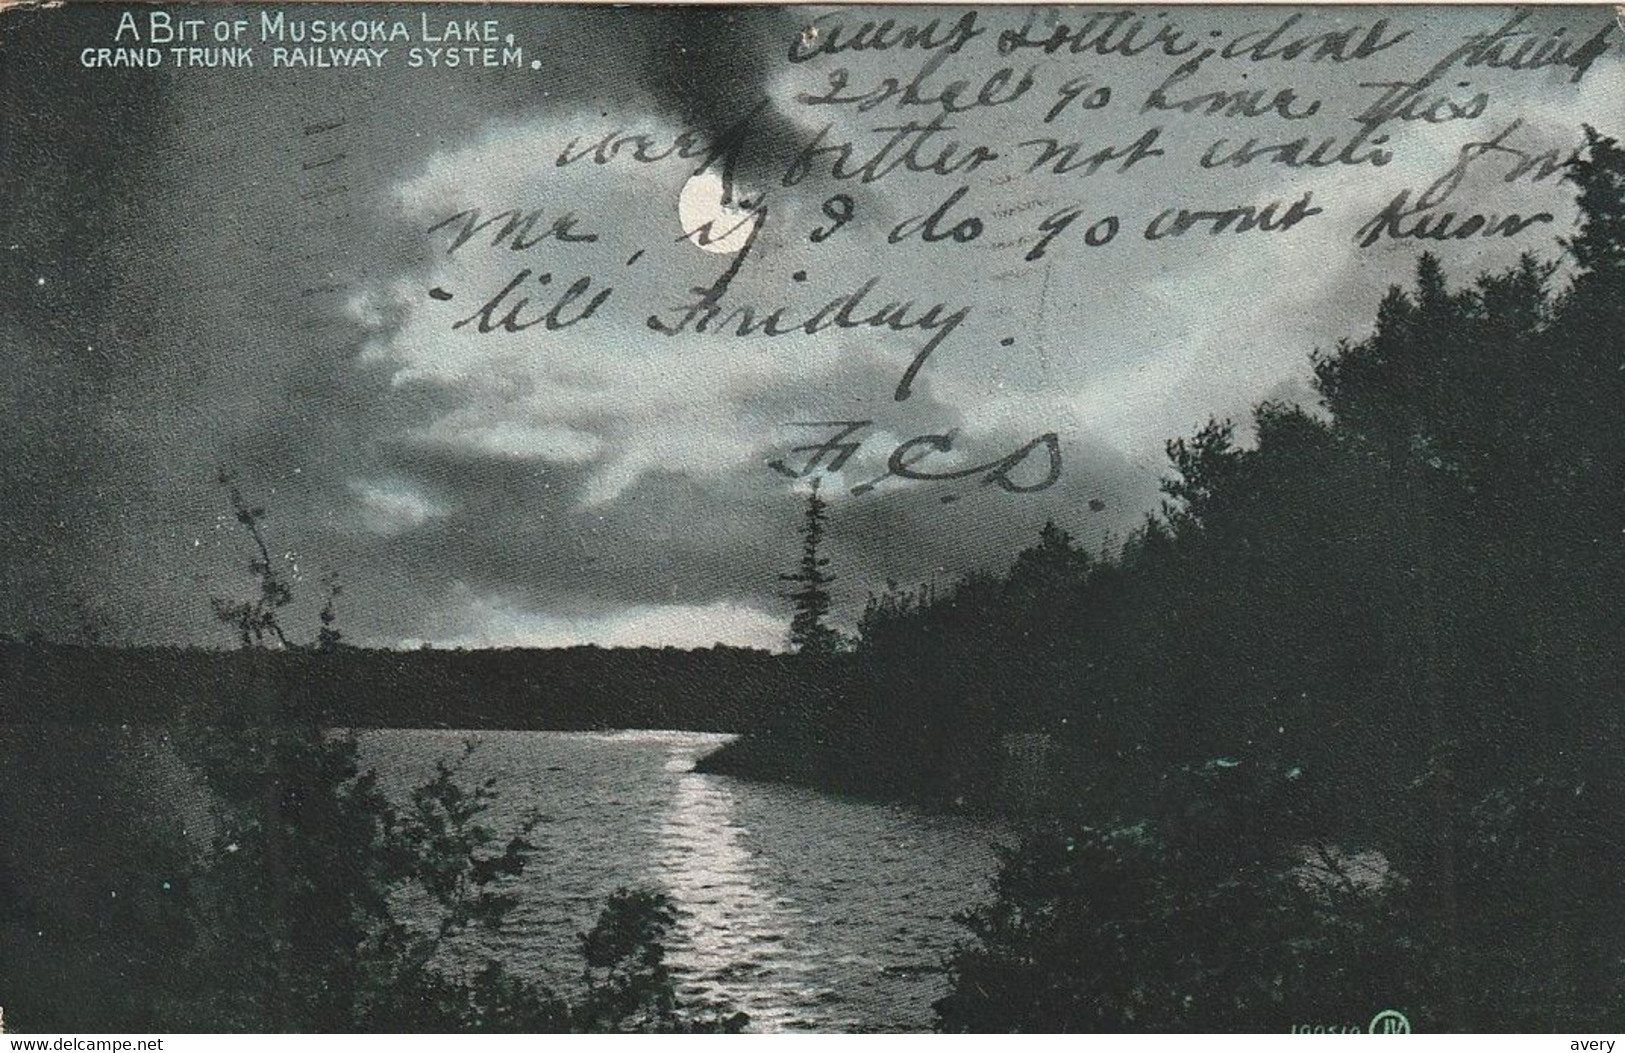 A BIT OF MUSKOKA LAKE.
GRAND TRUNK RAILWAY SYSTEM.
Aunt Lottie; dont think
I shall go home this
week better not wait for
me, if I do go wont know
'till Friday.
F.C.S.
100519 JV
avery